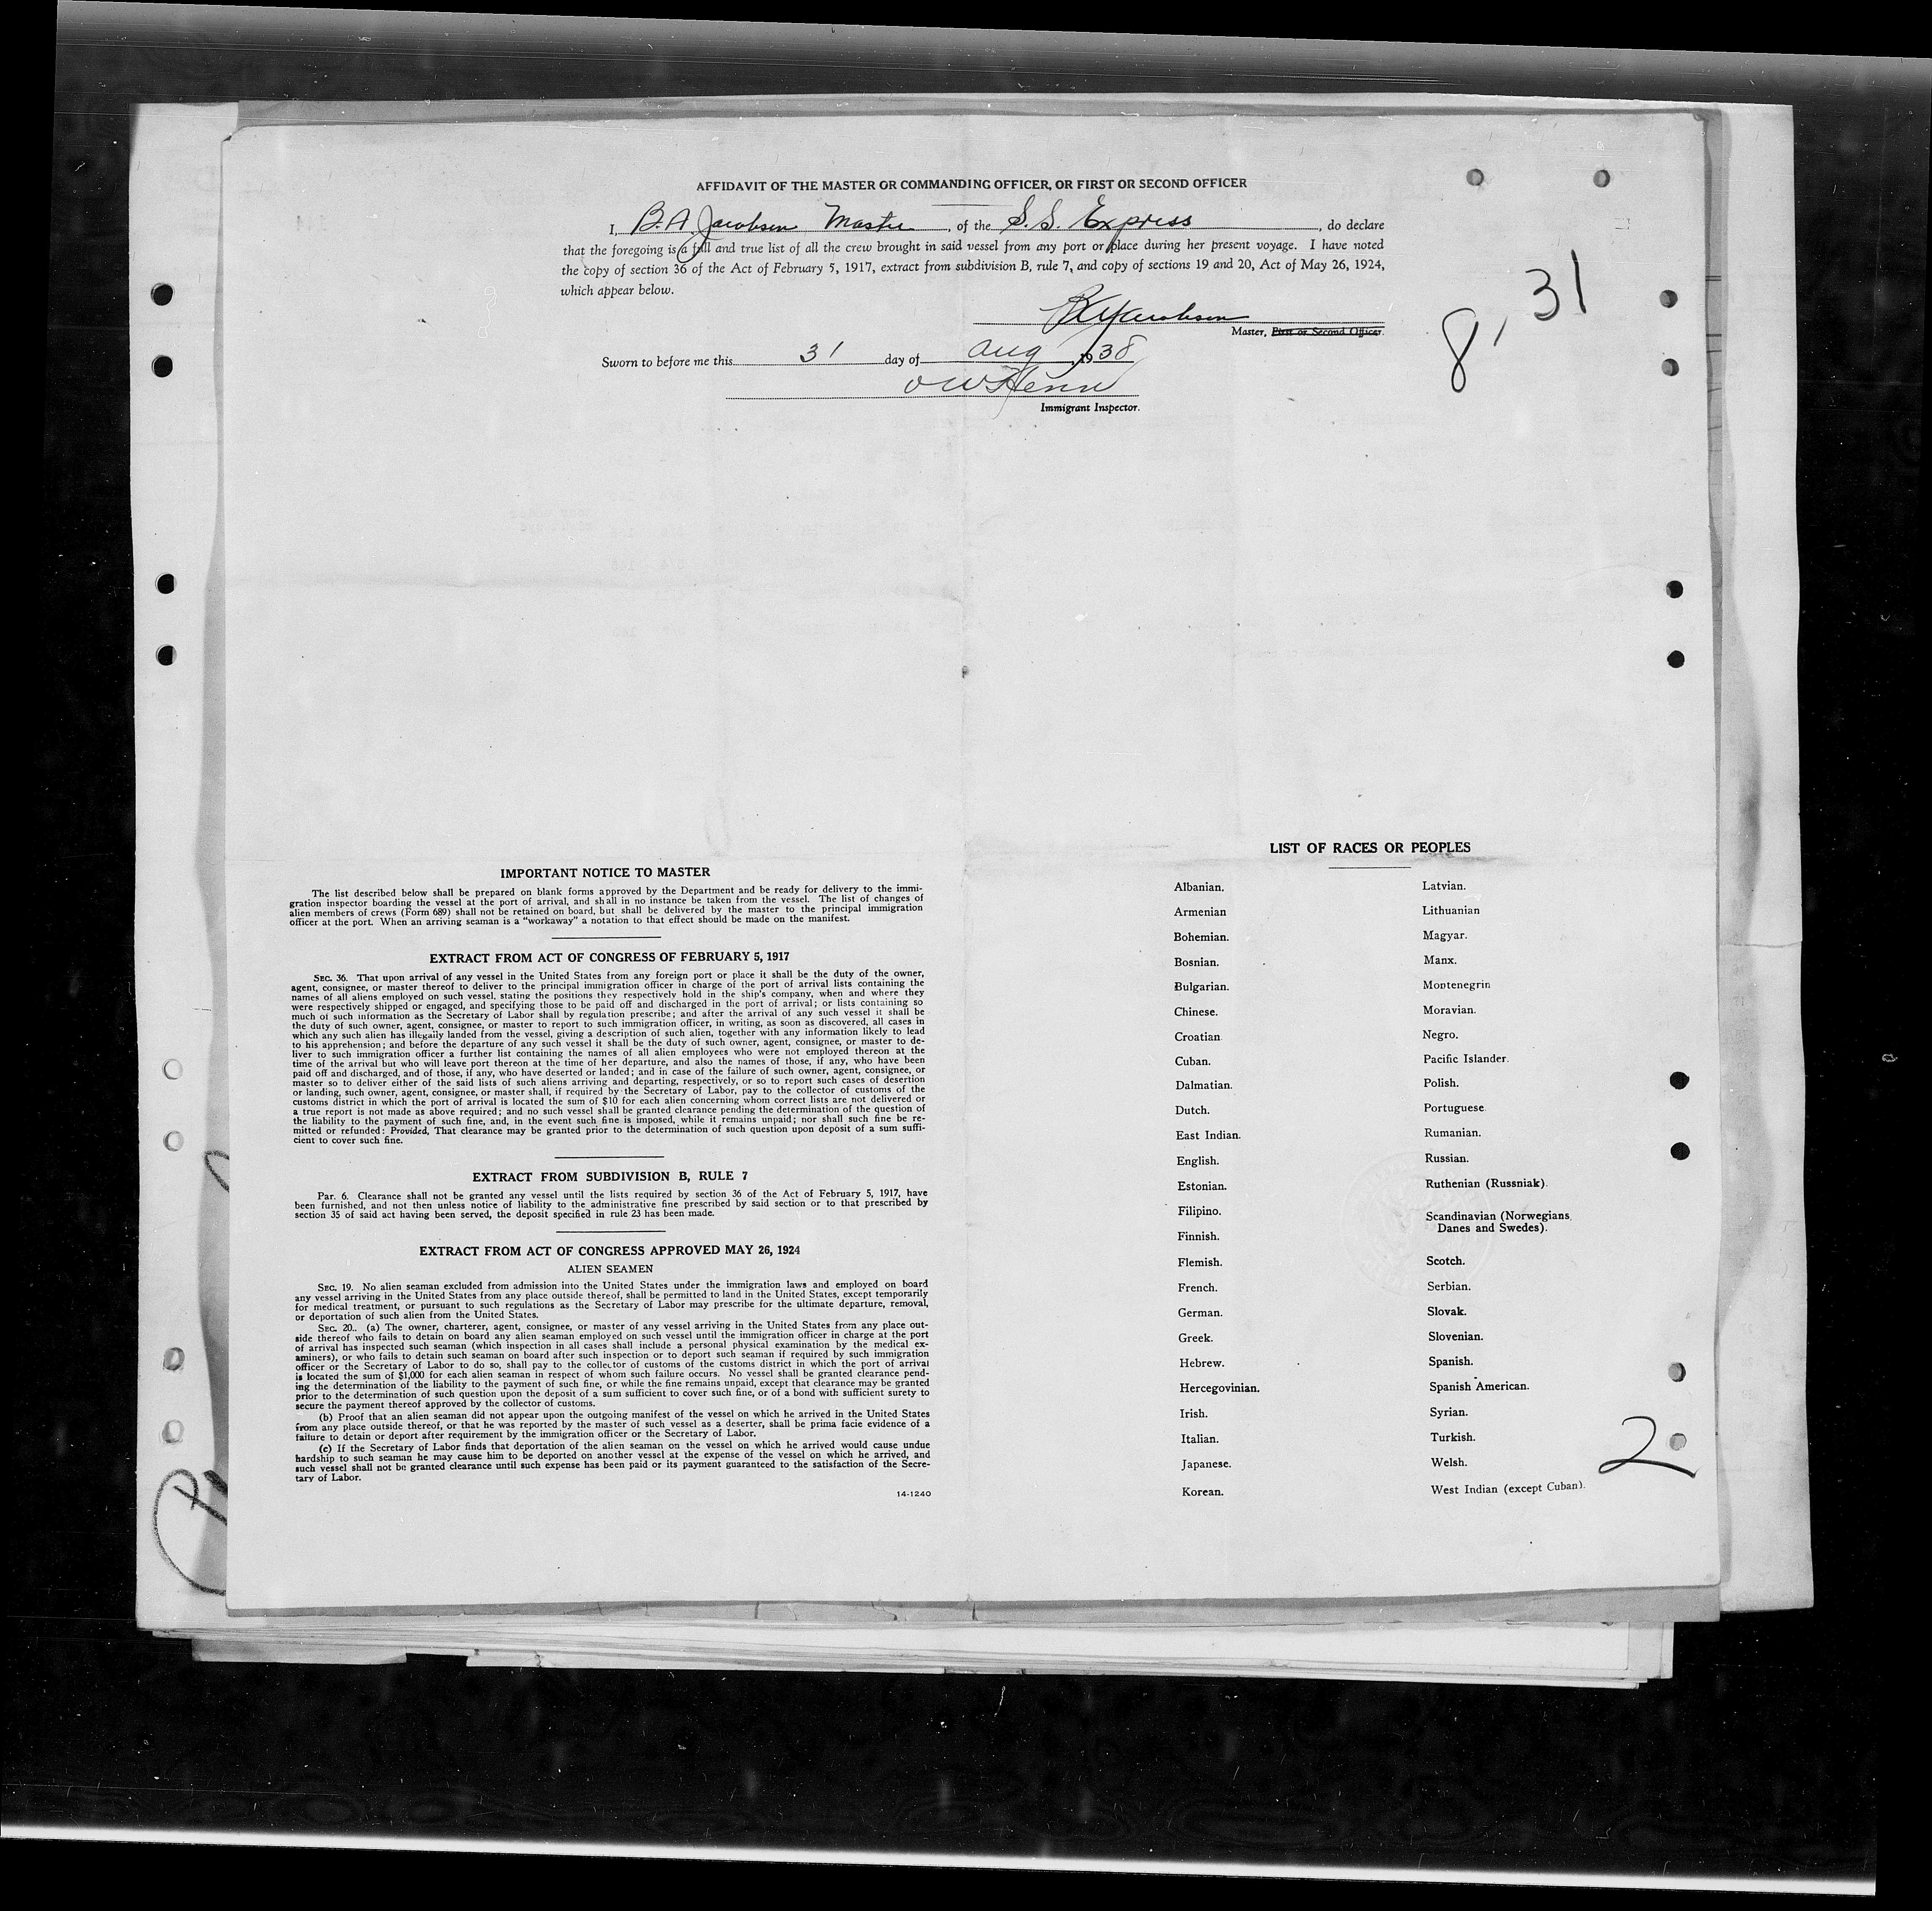 AFFIDAVIT OF THE MASTER OR COMMANDING OFFICER, OR FIRST OR SECOND OFFICER
I, B. A. Jacobsen Master, of the S.S. Express, do declare
that the foregoing is a full and true list of all the crew brought in said vessel from any port or place during her present voyage. I have noted
the copy of section 36 of the Act of February 5, 1917, extract from subdivision B, rule 7, and copy of sections 19 and 20, Act of May 26, 1924,
which appear below.
8, 31
B A Jacobsen
Master, First or Second Officer.
Sworn to before me this 31 day of Aug, 1938
Immigrant Inspector.
IMPORTANT NOTICE TO MASTER
The list described below shall be prepared on blank forms approved by the Department and be ready for delivery to the immi-
gration inspector boarding the vessel at the port of arrival, and shall in no instance be taken from the vessel. The list of changes of
alien members of crews (Form 689) shall not be retained on board, but shall be delivered by the master to the principal immigration
officer at the port. When an arriving seaman is a "workaway" a notation to that effect should be made on the manifest.
EXTRACT FROM ACT OF CONGRESS OF FEBRUARY 5, 1917
SEC. 36. That upon arrival of any vessel in the United States from any foreign port or place it shall be the duty of the owner,
agent, consignee, or master thereof to deliver to the principal immigration officer in charge of the port of arrival lists containing the
names of all aliens employed on such vessel, stating the positions they respectively hold in the ship's company, when and where they
were respectively shipped or engaged, and specifying those to be paid off and discharged in the port of arrival; or lists containing so
much of such information as the Secretary of Labor shall by regulation prescribe; and after the arrival of any such vessel it shall be
the duty of such owner, agent, consignee, or master to report to such immigration officer, in writing, as soon as discovered, all cases in
which any such alien has illegally landed from the vessel, giving a description of such alien, together with any information likely to lead
to his apprehension; and before the departure of any such vessel it shall be the duty of such owner, agent, consignee, or master to de-
liver to such immigration officer a further list containing the names of all alien employees who were not employed thereon at the
time of the arrival but who will leave port thereon at the time of her departure, and also the names of those, if any, who have been
paid off and discharged, and of those, if any, who have deserted or landed; and in case of the failure of such owner, agent, consignee, or
master so to deliver either of the said lists of such aliens arriving and departing, respectively, or so to report such cases of desertion
or landing, such owner, agent, consignee, or master shall, if required by the Secretary of Labor, pay to the collector of customs of the
customs district in which the port of arrival is located the sum of $10 for each alien concerning whom correct lists are not delivered or
a true report is not made as above required; and no such vessel shall be granted clearance pending the determination of the question of
the liability to the payment of such fine, and, in the event such fine is imposed, while it remains unpaid; nor shall such fine be re-
mitted or refunded: Provided, That clearance may be granted prior to the determination of such question upon deposit of a sum suffi-
cient to cover such fine.
EXTRACT FROM SUBDIVISION B, RULE 7
Par. 6. Clearance shall not be granted any vessel until the lists required by section 36 of the Act of February 5, 1917, have
been furnished, and not then unless notice of liability to the administrative fine prescribed by said section or to that prescribed by
section 35 of said act having been served, the deposit specified in rule 23 has been made.
EXTRACT FROM ACT OF CONGRESS APPROVED MAY 26, 1924
ALIEN SEAMEN
SEC. 19. No alien seaman excluded from admission into the United States under the immigration laws and employed on board
any vessel arriving in the United States from any place outside thereof, shall be permitted to land in the United States, except temporarily
for medical treatment, or pursuant to such regulations as the Secretary of Labor may prescribe for the ultimate departure, removal,
or deportation of such alien from the United States.
SEC. 20.. (a) The owner, charterer, agent, consignee, or master of any vessel arriving in the United States from any place out-
side thereof who fails to detain on board any alien seaman employed on such vessel until the immigration officer in charge at the port
of arrival has inspected such seaman (which inspection in all cases shall include a personal physical examination by the medical ex-
aminers), or who fails to detain such seaman on board after such inspection or to deport such seaman if required by such immigration
officer or the Secretary of Labor to do so, shall pay to the collector of customs of the customs district in which the port of arrival
is located the sum of $1,000 for each alien seaman in respect of whom such failure occurs. No vessel shall be granted clearance pend-
ing the determination of the liability to the payment of such fine, or while the fine remains unpaid, except that clearance may be granted
prior to the determination of such question upon the deposit of a sum sufficient to cover such fine, or of a bond with sufficient surety to
secure the payment thereof approved by the collector of customs.
(b) Proof that an alien seaman did not appear upon the outgoing manifest of the vessel on which he arrived in the United States
from any place outside thereof, or that he was reported by the master of such vessel as a deserter, shall be prima facie evidence of a
failure to detain or deport after requirement by the immigration officer or the Secretary of Labor.
(c) If the Secretary of Labor finds that deportation of the alien seaman on the vessel on which he arrived would cause undue
hardship to such seaman he may cause him to be deported on another vessel at the expense of the vessel on which he arrived, and
such vessel shall not be granted clearance until such expense has been paid or its payment guaranteed to the satisfaction of the Secre-
tary of Labor.
14-1240
LIST OF RACES OR PEOPLES
Albanian.
Armenian
Bohemian.
Bosnian.
Bulgarian.
Chinese.
Croatian
Cuban.
Dalmatian.
Dutch.
East Indian.
English.
Estonian.
Filipino.
Finnish.
Flemish.
French.
German.
Greek.
Hebrew.
Hercegovinian.
Irish.
Italian.
Japanese.
Korean.
Latvian.
Lithuanian
Magyar.
Manx.
Montenegrin
Moravian.
Negro.
Pacific Islander.
Polish.
Portuguese
Rumanian.
Russian.
Ruthenian (Russniak).
Scandinavian (Norwegians,
Danes and Swedes).
Scotch.
Serbian.
Slovak.
Slovenian.
Spanish.
Spanish American.
Syrian.
Turkish.
Welsh.
West Indian (except Cuban).
2